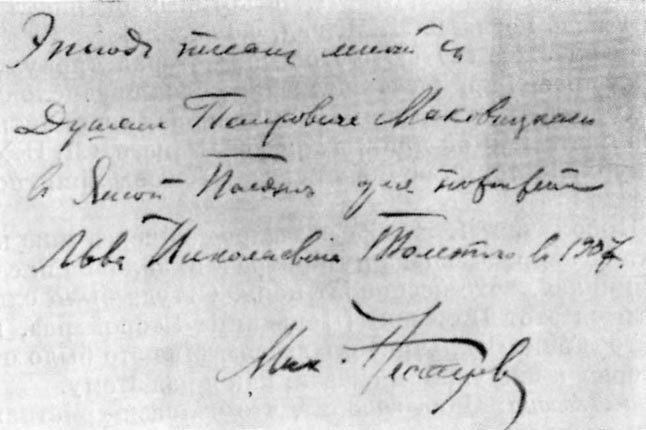 Этюдъ писанъ мной съ
Душана Петровича Маковицкаго
в Ясной Полянѣ для портрета
Льва Николаевича Толстого в 1907.
Мих. Нестеров